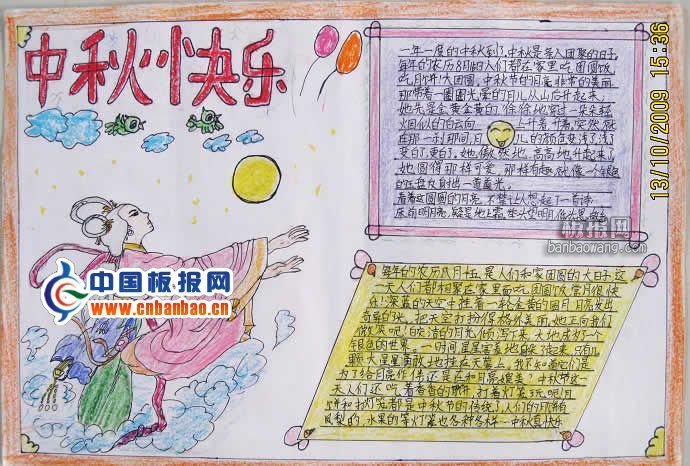 中秋快乐
一年一度的中秋到了,中秋是家人团聚的日子,
每年的农历8月15日人们都在家里吃团圆饭
吃月饼大团圆。中秋节的月亮非常的美丽
那带着一圈圈光晕的月儿从山后升起来,
她先是金黄金黄的徐徐地穿过一朵朵轻
烟似的白云向上升着升着,突然就
在那一刹那间,月儿的颜色变浅了浅了
变白了,更白了。她傲然地、高高地升起来了
她圆得那样可爱,那样有趣,就像一个银色
的
看着这圆圆的月亮,不禁让人想起了一首诗
床前明月光,疑是地上霜。举头望明月,低头思故乡
板报网
banbaowang.com
每年的农历八月十五,是人们和家团圆的大日子,这
一天人们都相聚在家里面吃团圆饭,赏月很快
乐!深蓝的天空中挂着一轮金黄的圆月,月亮发出
把天空打扮得格外美丽,她正向我们
微笑呢!皎洁的月光倾泻下来,大地成了一个
银色的世界。一时间星星害羞地躲了起来,只有几
颗大星星勇敢地挂在天幕上。我不知道它们是
为了给月亮作伴还是在和月亮媲美!中秋节这一
天人们还吃着香香的月饼,打着灯笼玩呢!月
饼和灯笼都是中秋节的传统了人们的月饼有
凤梨的、水果的等灯笼也各种各样
中国板报网
www.cnbanbao.cn
13/10/2009 15:36